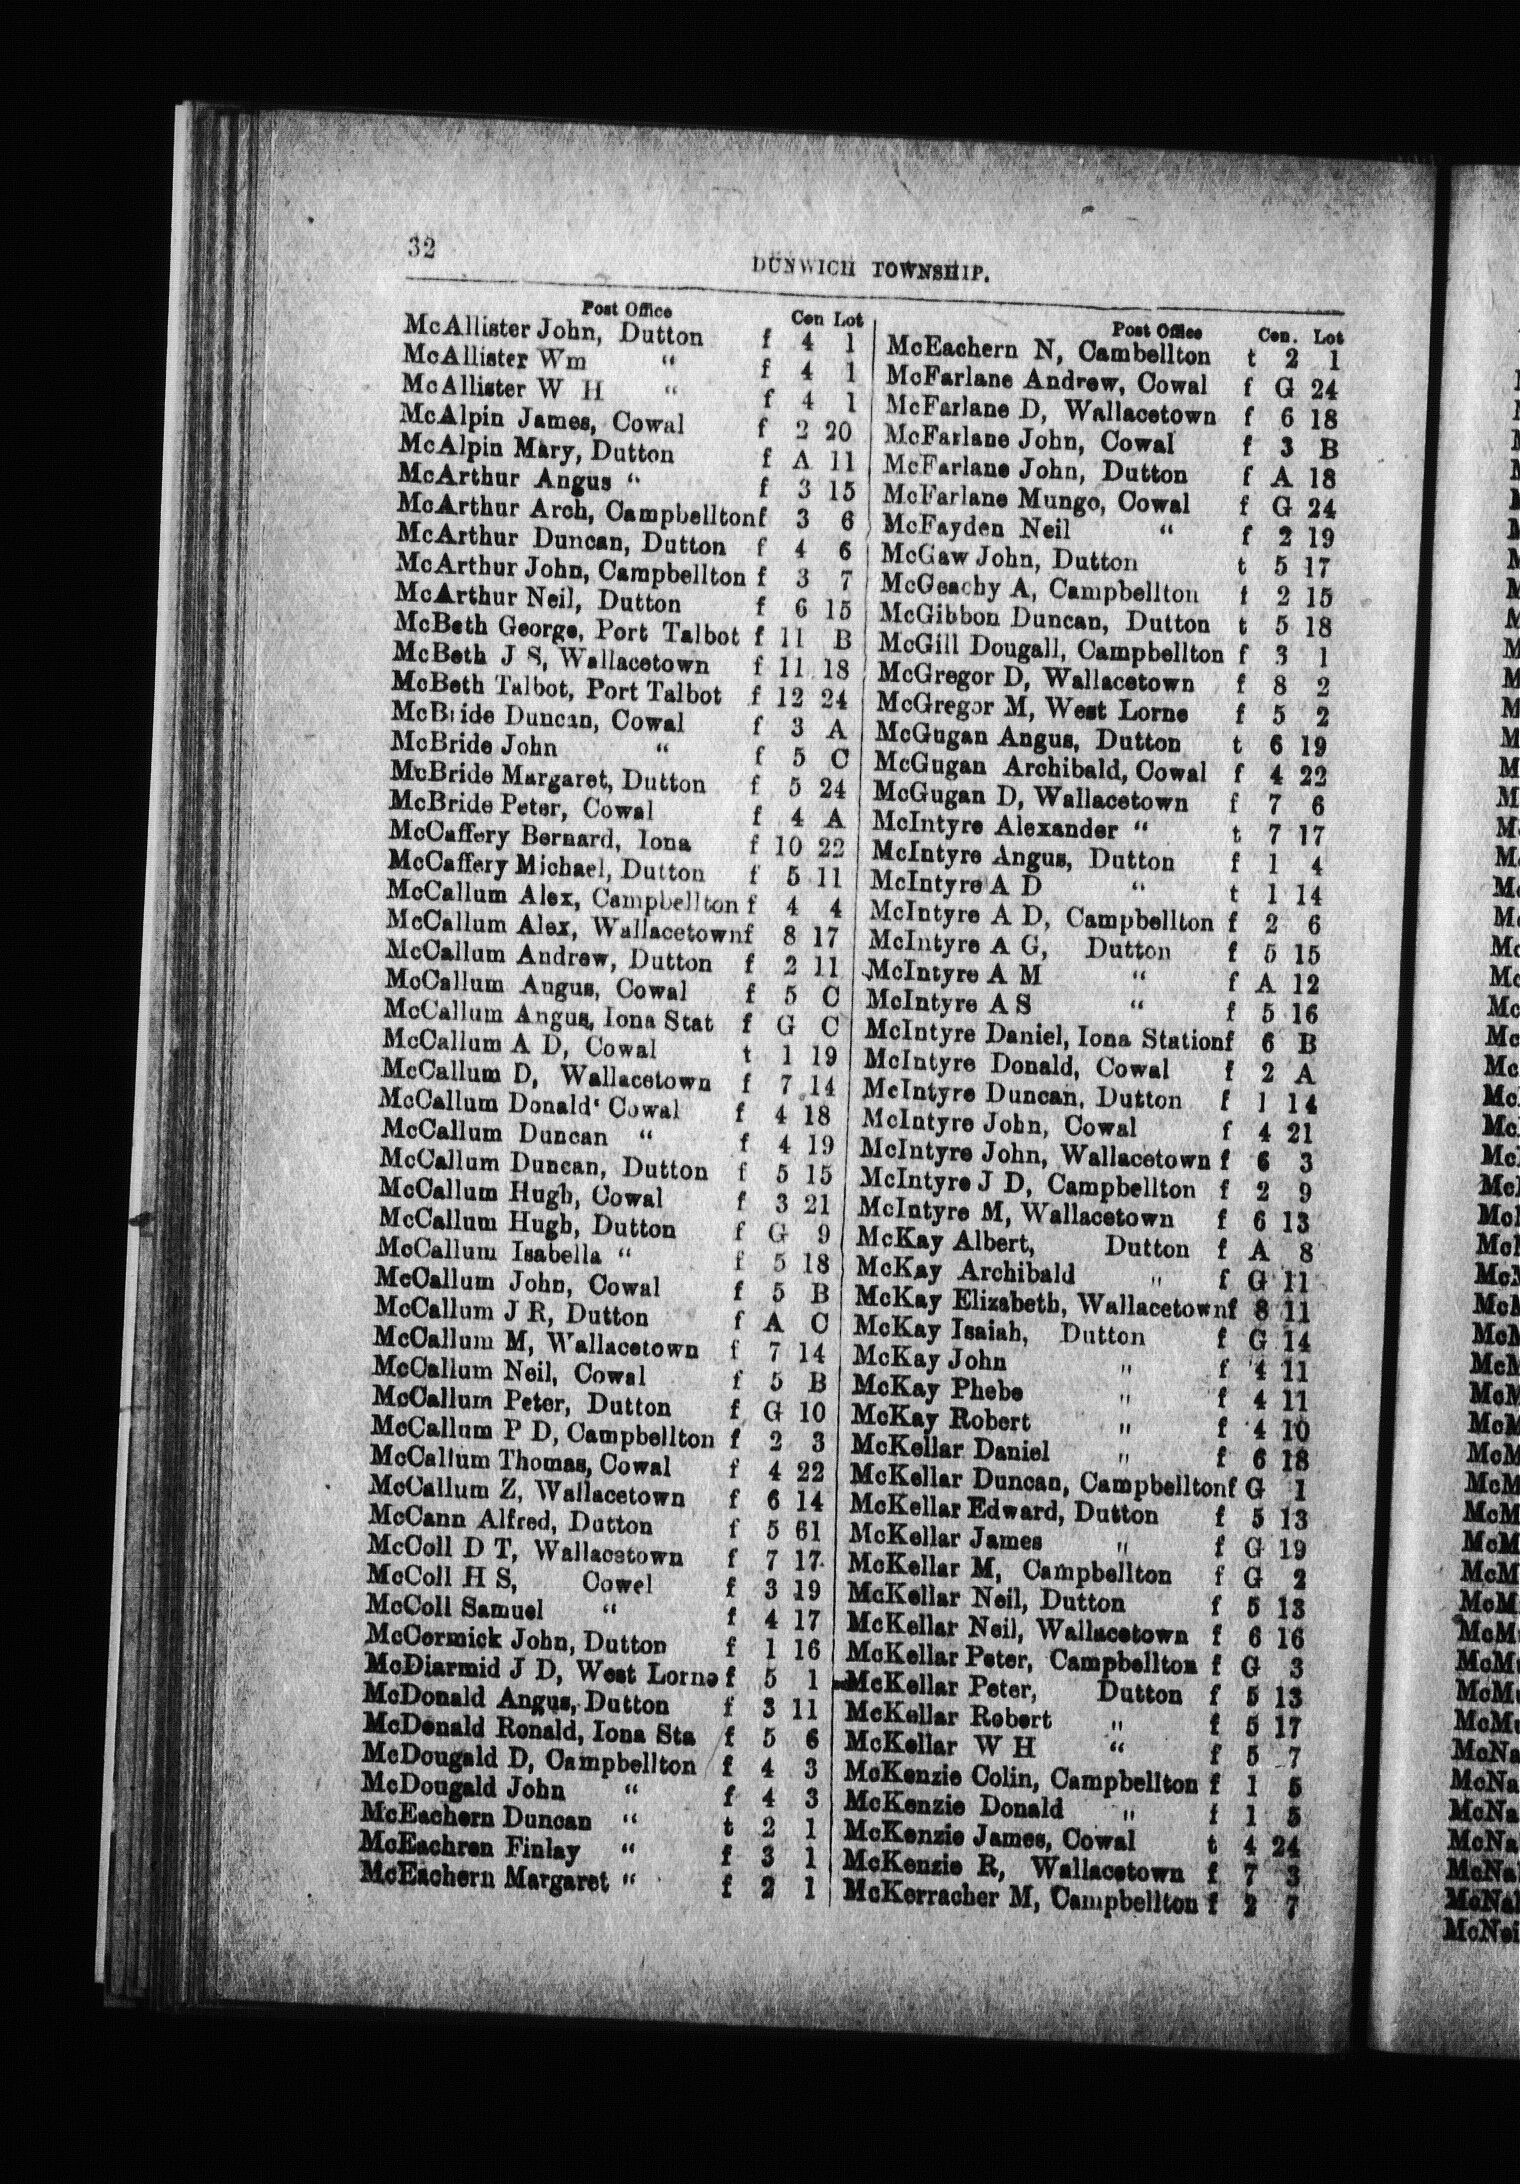 32
DUNWICH TOWNSHIP.
Post Office Con Lot
McAllister John, Dutton f 4 1
McAllister Wm " f 4 1
McAllister W H " f 4 1
McAlpin James, Cowal f 2 20
McAlpin Mary, Dutton f A 11
McArthur Angus " f 3 15
McArthur Arch, Campbellton f 3 6
McArthur Duncan, Dutton f 4 6
McArthur John, Campbellton f 3 7
McArthur Neil, Dutton f 6 15
McBeth George, Port Talbot f 11 B
McBeth J S, Wallacetown f 11 18
McBeth Talbot, Port Talbot f 12 24
McBride Duncan, Cowal f 3 A
McBride John " f 5 C
McBride Margaret, Dutton f 5 24
McBride Peter, Cowal f 4 A
McCaffery Bernard, Iona f 10 22
McCaffery Michael, Dutton f 5 11
McCallum Alex, Campbellton f 4 4
McCallum Alex, Wallacetown f 8 17
McCallum Andrew, Dutton f 2 11
McCallum Angus, Cowal f 5 C
McCallum Angus, Iona Stat f G C
McCallum A D, Cowal t 1 19
McCallum D, Wallacetown f 7 14
McCallum Donald' Cowal f 4 18
McCallum Duncan " f 4 19
McCallum Duncan, Dutton f 5 15
McCallum Hugh, Cowal f 3 21
McCallum Hugh, Dutton f G 9
McCallum Isabella " f 5 18
McCallum John, Cowal f 5 B
McCallum J R, Dutton f A C
McCallum M, Wallacetown f 7 14
McCallum Neil, Cowal f 5 B
McCallum Peter, Dutton f G 10
McCallum P D, Campbellton f 2 3
McCallum Thomas, Cowal f 4 22
McCallum Z, Wallacetown f 6 14
McCann Alfred, Dutton f 5 61
McColl D T, Wallacetown f 7 17
McColl H S, Cowel f 3 19
McColl Samuel " f 4 17
McCormick John, Dutton f 1 16
McDiarmid J D, West Lorne f 5 1
McDonald Angus, Dutton f 3 11
McDonald Ronald, Iona Sta f 5 6
McDougald D, Campbellton f 4 3
McDougald John " f 4 3
McEachern Duncan " t 2 1
McEachren Finlay " f 3 1
McEachern Margaret " f 2 1
Post Office Con. Lot
McEachern N, Cambellton t 2 1
McFarlane Andrew, Cowal f G 24
McFarlane D, Wallacetown f 6 18
McFarlane John, Cowal f 3 B
McFarlane John, Dutton f A 18
McFarlane Mungo, Cowal f G 24
McFayden Neil " f 2 19
McGaw John, Dutton t 5 17
McGeachy A, Campbellton f 2 15
McGibbon Duncan, Dutton t 5 18
McGill Dougall, Campbellton f 3 1
McGregor D, Wallacetown f 8 2
McGregor M, West Lorne f 5 2
McGugan Angus, Dutton t 6 19
McGugan Archibald, Cowal f 4 22
McGugan D, Wallacetown f 7 6
McIntyre Alexander " t 7 17
McIntyre Angus, Dutton f 1 4
McIntyre A D " t 1 14
McIntyre A D, Campbellton f 2 6
McIntyre A G, Dutton f 5 15
McIntyre A M " f A 12
McIntyre A S " f 5 16
McIntyre Daniel, Iona Station f 6 B
McIntyre Donald, Cowal f 2 A
McIntyre Duncan, Dutton f 1 14
McIntyre John, Cowal f 4 21
McIntyre John, Wallacetown f 6 3
McIntyre J D, Campbellton f 2 9
McIntyre M, Wallacetown f 6 13
McKay Albert, Dutton f A 8
McKay Archibald " f G 11
McKay Elizabeth, Wallacetown f 8 11
McKay Isaiah, Dutton f G 14
McKay John " f 4 11
McKay Phebe " f 4 11
McKay Robert " f 4 10
McKellar Daniel " f 6 18
McKellar Duncan, Campbellton f G 1
McKellar Edward, Dutton f 5 13
McKellar James " f G 19
McKellar M, Campbellton f G 2
McKellar Neil, Dutton f 5 13
McKellar Neil, Wallacetown f 6 16
McKellar Peter, Campbellton f G 3
McKellar Peter, Dutton f 5 13
McKellar Robert " f 5 17
McKellar W H " f 5 7
McKenzie Colin, Campbellton f 1 5
McKenzie Donald " f 1 5
McKenzie James, Cowal t 4 24
McKenzie R, Wallacetown f 7 3
McKerracher M, Campbellton f 2 7